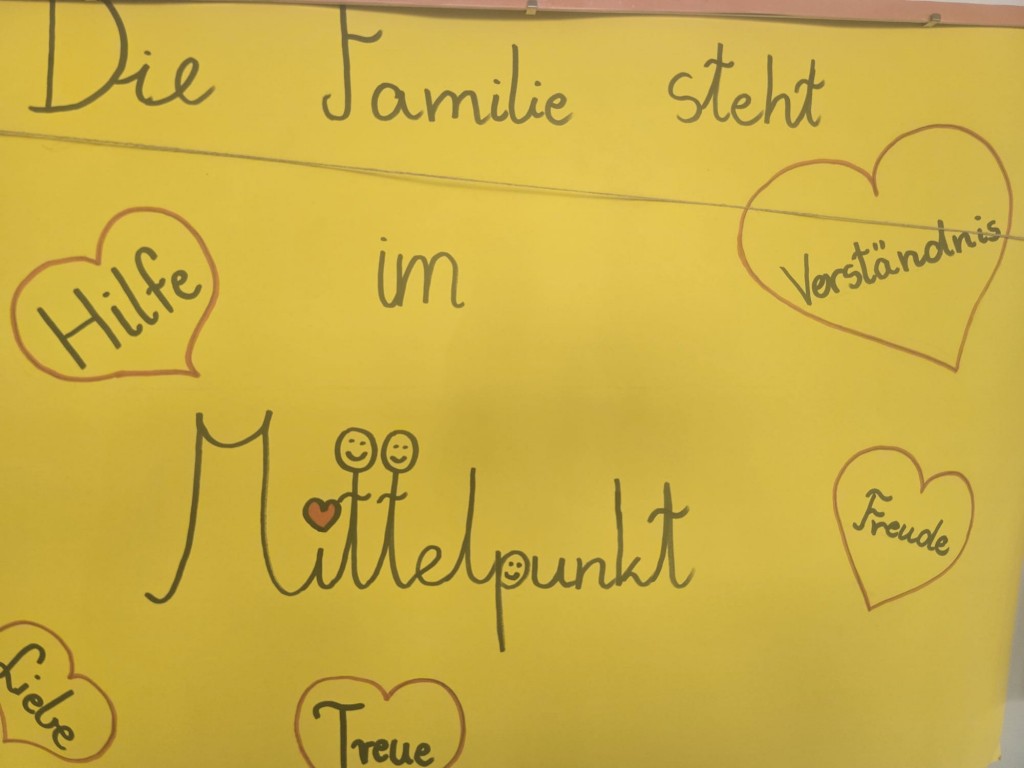 Die Familie steht
im
Mittelpunkt
Hilfe
Verständnis
Freude
Liebe
Treue